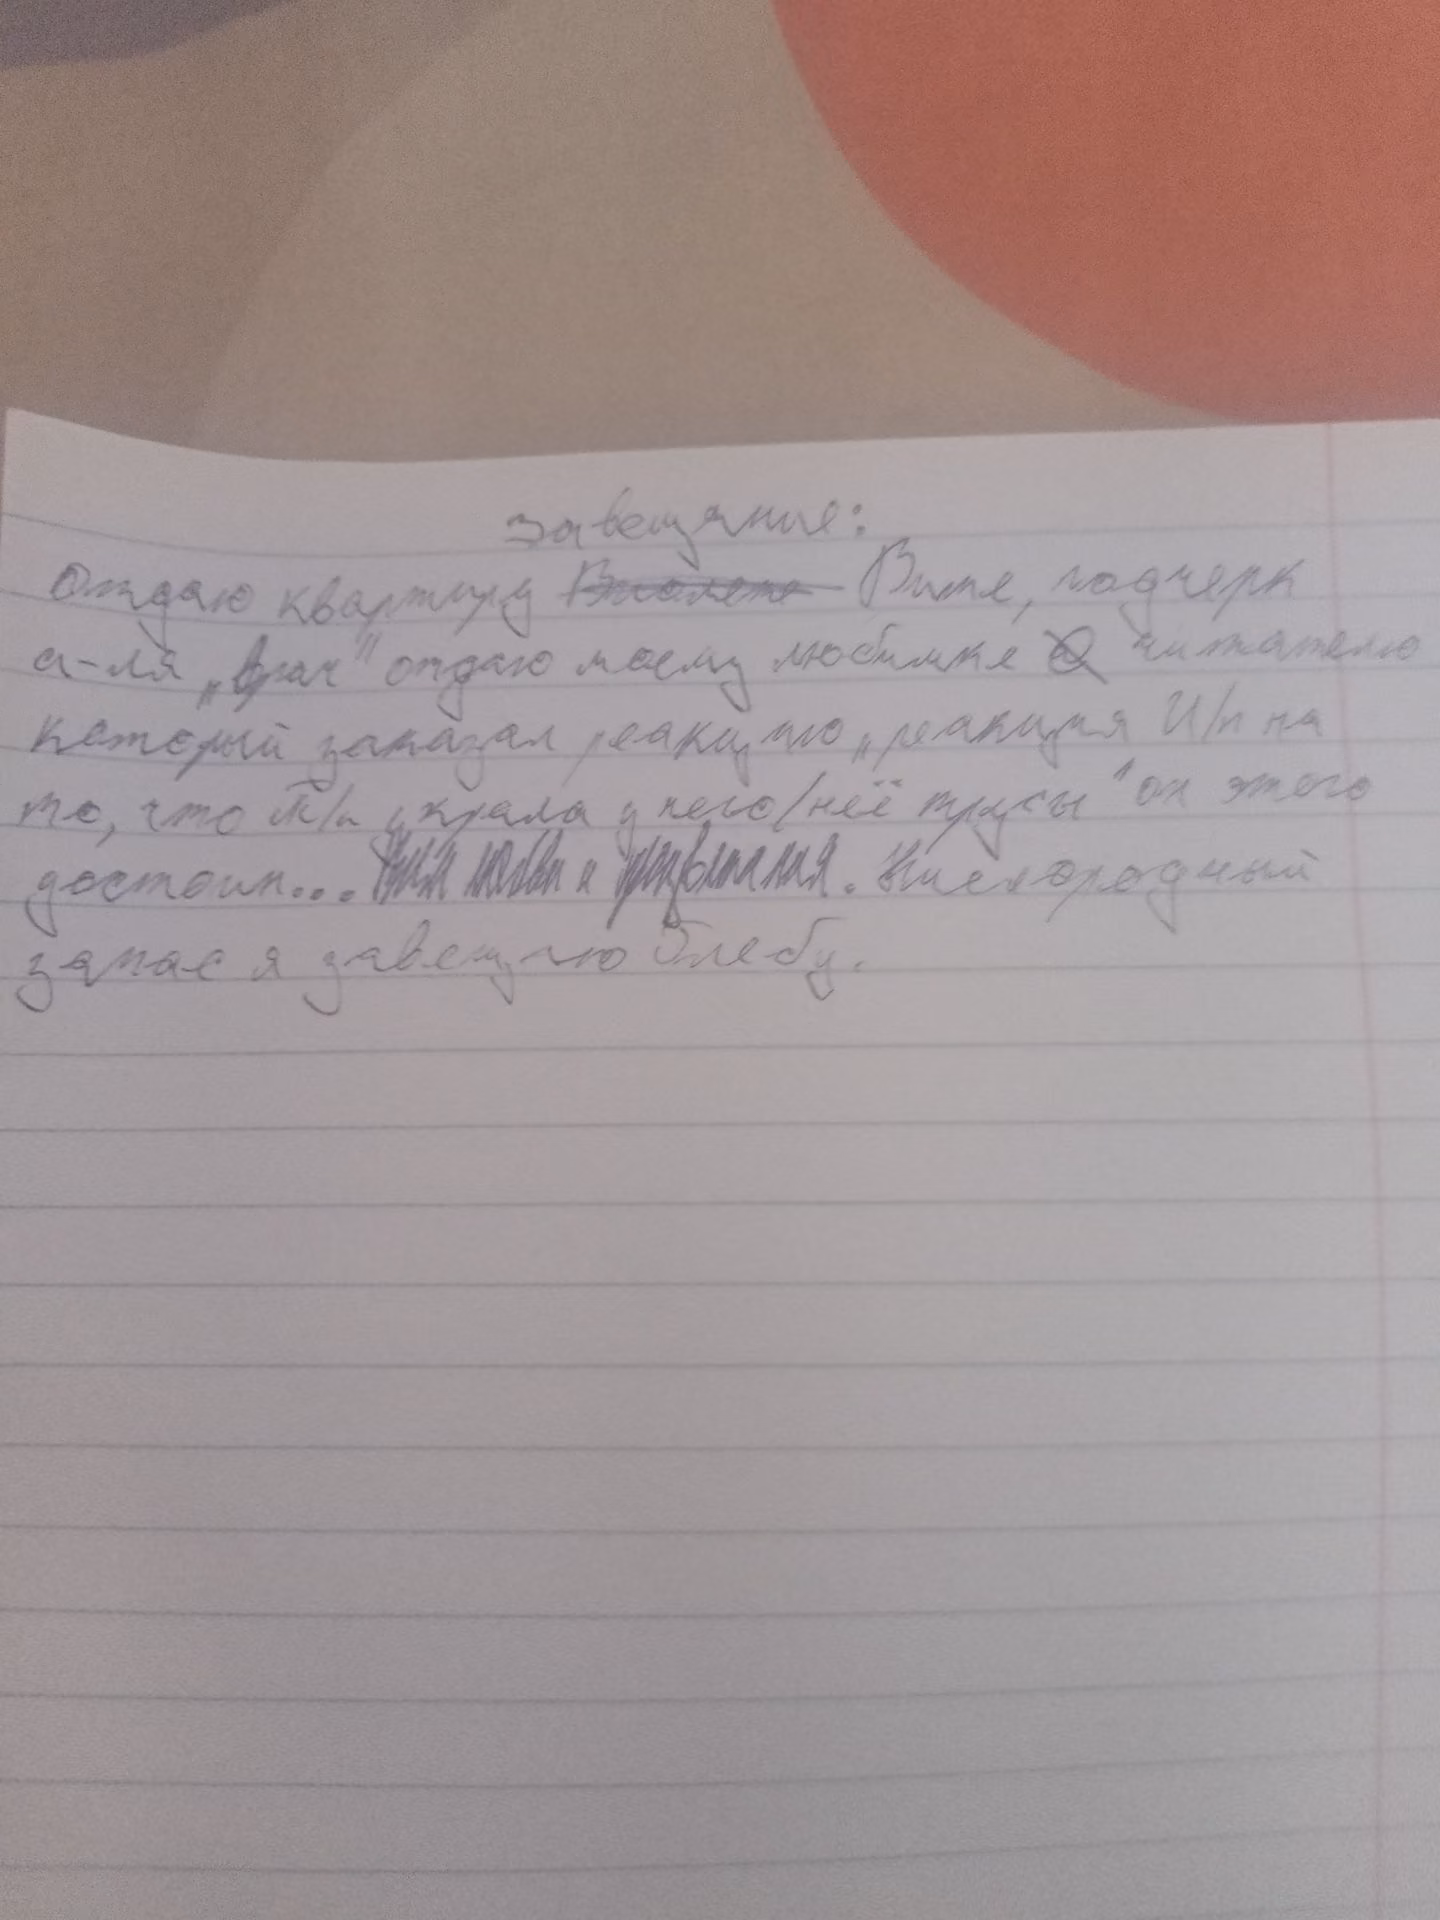 завещание:
Отдаю квартиру Виолете Вите, подчерк
а-ля „врач" отдаю моему любимке читателю
который заказал реакцию „реакция И/п на
то, что Т/и украла у него/неё трусы" он этого
достоин... любви и. Кислородный
запас я завещаю Глебу.